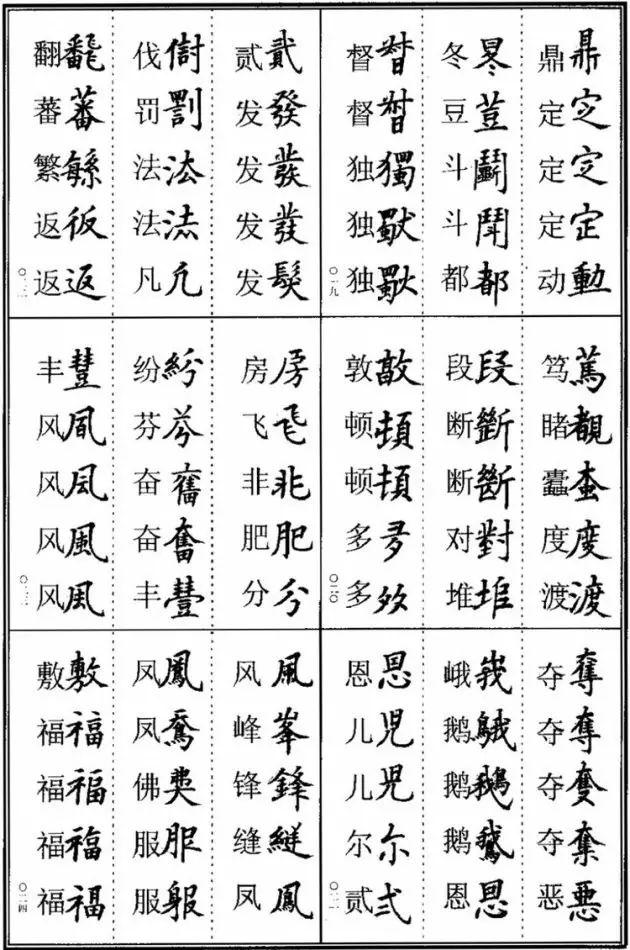 鼎鼎 定㝎 定㝎 定定 动動
冬冬 豆荳 斗鬭 斗鬥 都都
督督 督督 独獨 独 独
〇一九
笃篤 睹覩 蠹 度度 渡渡
段段 断斷 断斷 对對 堆堆
敦敦 顿頓 顿頓 多多 多
〇二〇
夺奪 夺奪 夺 夺 恶悪
峨峩 鹅䳘 鹅鵝 鹅鵞 恩恩
恩恩 儿児 儿児 尔尓 贰弍
〇二一
贰貳 发發 发發 发發 发髮
伐 罚罰 法法 法法 凡凡
翻飜 蕃蕃 繁緐 返仮 返返
〇二二
房房 飞飛 非非 肥肥 分分
纷紛 芬芬 奋奮 奋奮 丰豐
丰豐 风凬 风凮 风風 风風
〇二三
风風 峰峯 锋鋒 缝縫 凤鳳
凤鳳 凤 佛 服服 服
敷敷 福福 福福 福福 福福
〇二四